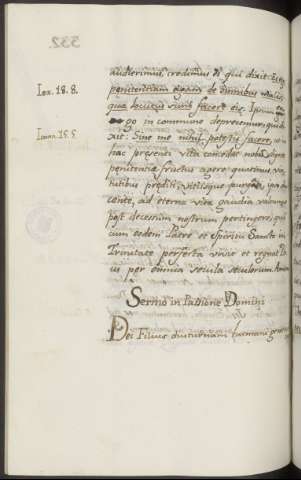 332
audierimus, credimus ei qui dixit:
Ier. 18. 8.
poenitentiam agam de omnibus malis,
quae locutus sum facere eis. Ipsum
go in commune deprecemur, qui di
Ioann. 15. 5.
xit: Sine me nihil potestis facere,
hac presenti vita concedat nobis digna
penitentia fructus agere quatinus
tutibus praediti, vitiisque
cente, ad eterna vita gaudia valeamus
post decessum nostrum pertingere, qui
cum eodem Patre et Spiritu Sancto in
Trinitate perfecta vivit et regnat De
us per omnia secula seculorum Amen
Sermo in Passione Domini
Dei Filius diuturnam humani